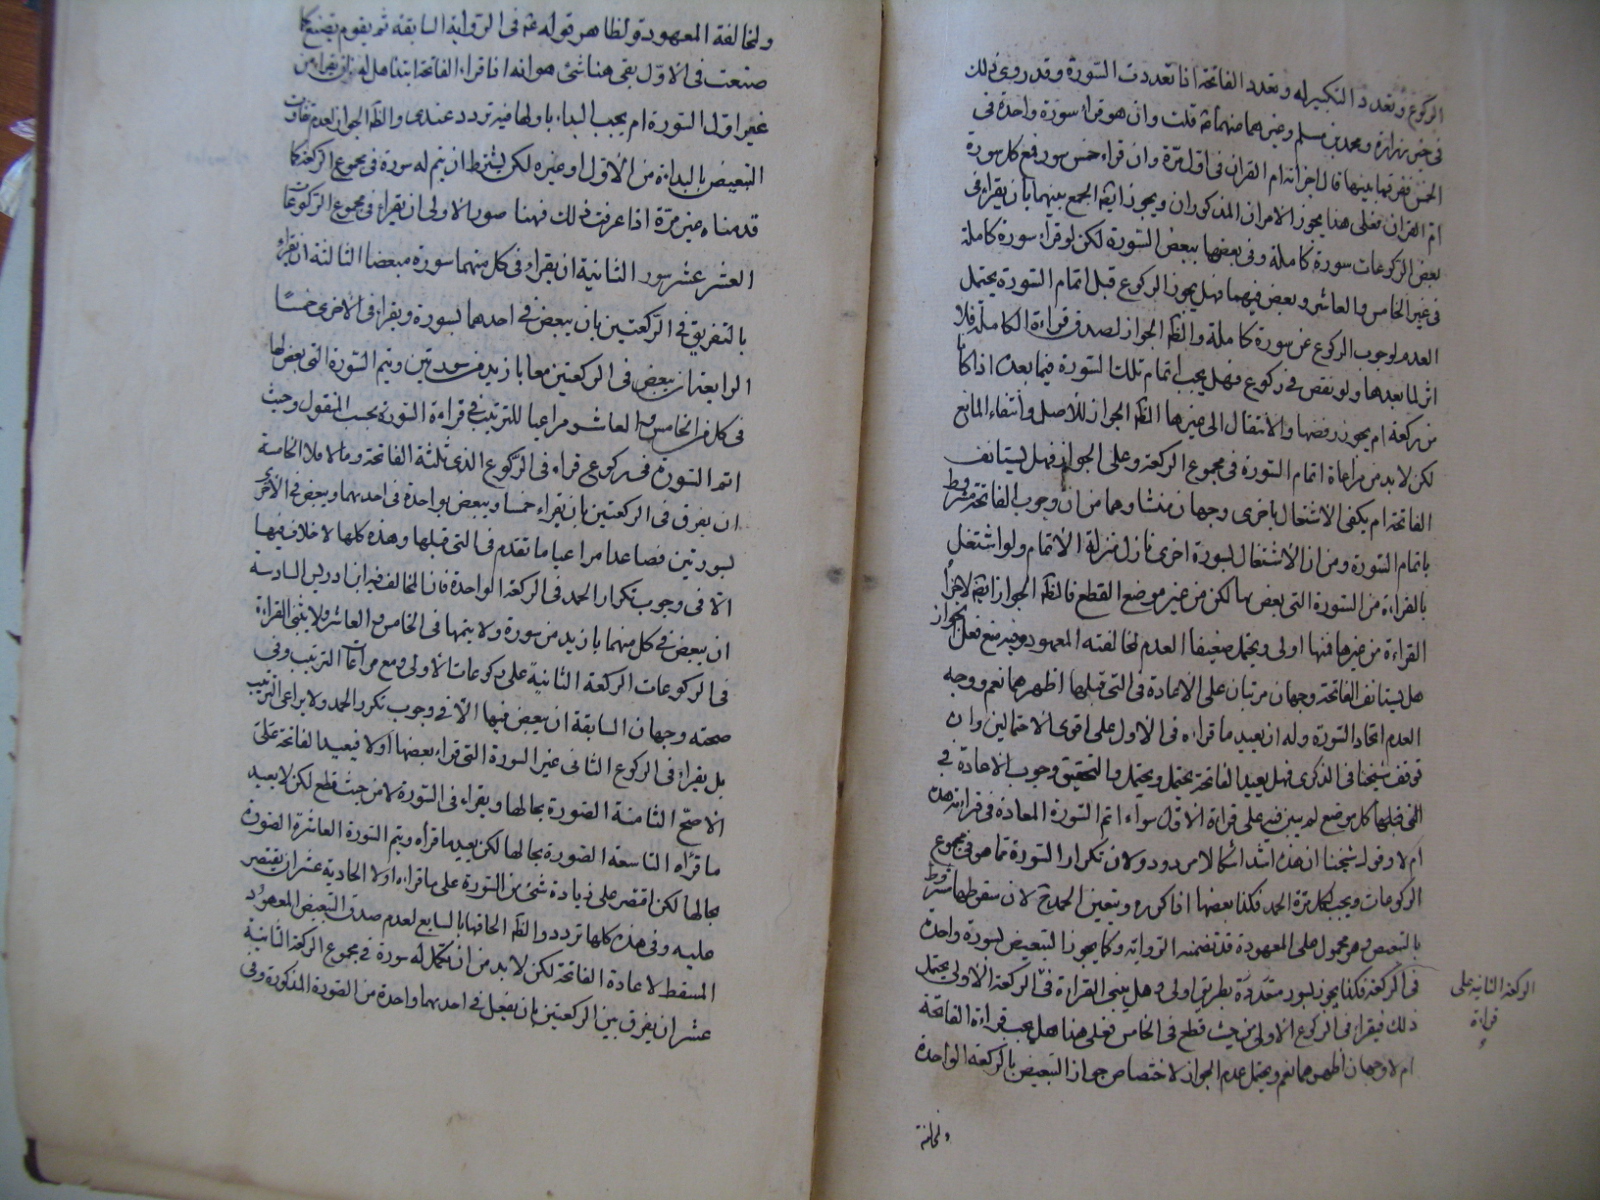 الركوع وتعدد التكبير له وتعدد الفاتحة اذا تعددت السورة وقد روى ذلك
فى خبر زرارة ومحمد بن مسلم وغيرهما قلت وان هو قرأ سورة واحدة فى
الخمس ففرقها بينها قال اجزاته ام القران فى اول مرة وان قراء خمس سور فمع كل سورة
ام القران فعلى هذا يجوز الامران المذكوران ويجوز ايضا الجمع بينهما بان يقراء فى
بعض الركوعات سورة كاملة وفى بعضها ببعض السورة لكن لو قراء سورة كاملة
فى غير الخامس والعاشر وبعض فيهما فهل يجوز الركوع قبل اتمام السورة يحتمل
العدم لوجوب الركوع عن سورة كاملة والظ الجواز لصدق قراءة الكاملة فلا
اثر لما بعدها ولو نقص فى ركوع فهل يجب اتمام تلك السورة فيما بعد اذا كانا
من ركعة ام يجوز رفضها والانتقال الى غيرها الظ الجواز للاصل وانتفاء المانع
لكن لابد من مراعاة اتمام السورة فى مجموع الركعة وعلى الجواز فهل يستانف
الفاتحة ام يكفى الاشتغال باخرى وجهان منشاوهما من ان وجوب الفاتحة مشروط
باتمام السورة ومن ان الاشتغال بسورة اخرى نازل منزلة الاتمام ولو اشتغل
بالقراءة من السورة التى بعض بها لكن من غير موضع القطع فالظ الجواز ايضا لاجزا
القراءة من غيرها ففيها اولى ويحتمل ضعيفا العدم لمخالفته المعهود ومع الجواز
هل يستانف الفاتحة وجهان مرتبان على الاعادة فى التى قبلها اظهرهما نعم ووجه
العدم اتحاد السورة وله ان يعيد ما قراءه فى الاول على اقوى الاحتمالين وان
توقف شيخنا فى الذكرى فهل يعيد الفاتحة يحتمل ويحتمل والتحقيق وجوب الاعادة فى
كل موضع لم يبن فيه على قراءة الاول سواء اتم السورة المعادة فى قراءته هذه
ام لا وقول شيخنا ان هذا اشد اشكالا مردود ولان تكرار السورة تماما هو فى مجموع
الركوعات ويجب لكل مرة الحمد فكذا بعضها اذا كرره ويتعين الحمد ح لان سقوطها مشروط
بالتبعيض وهو محمول على المعهود قد تضمنه الرواية وكما يجوز التبعيض بسورة واحدة
فى الركعة فكذا يجوز بسور متعددة بطريق اولى وهل يبنى القراءة فى الركعة الاولى يحتمل
ذلك فيقراء فى الركوع الاولى من حيث قطع فى الخامس فعلى هذا هل يجب قراءة الفاتحة
ام لا وجهان اظهرهما نعم ويحتمل عدم الجواز لاختصاص جواز التبعيض بالركعة الواحدة
الركعة الثانية على
قراءة
ولمخالفة
ولمخالفة المعهود ولظاهر قوله ع فى الرواية السابقة ثم يقوم يصنع كما
صنعت فى الاول بقى هنا شئ هو انه اذا قراء الفاتحة ابتداء هل له ان يقراء من
غير اول السورة ام يجب البداءة باولها فيه تردد عندى والظ الجواز لعدم تفاوت
التبعيض بالبداءة من الاول او غيره لكن يشترط ان يتم له سورة فى مجموع الركعة كما
قدمناه غير مرة اذا عرفت ذلك فهنا صور الاولى ان يقراء فى مجموع الركوعات
العشر عشر سور الثانية ان يقراء فى كل منهما سورة مبعضا الثالثة ان يقراء
بالتفريق فى الركعتين بان يبعض فى احدهما بسورة ويقراء فى الاخرى خمسا
الرابعة ان يبعض فى الركعتين معا بازيد من سورتين ويتم السورة التى بعض بها
فى كل من الخامس والعاشر مراعيا للترتيب فى قراءة السورة بحسب المنقول وحيث
اتم السورة فى ركوع قراء فى الركوع الذى ثلثه الفاتحة وما لا فلا الخامسة
ان يفرق فى الركعتين بان يقراء خمسا ويبعض بواحدة فى احدهما ويبعض فى الاخرى
بسورتين فصاعدا مراعيا ما تقدم فى التى قبلها وهذه كلها لا خلاف فيها
الا فى وجوب تكرار الحمد فى الركعة الواحدة فان المخالف فيه ابن ادريس السادسة
ان يبعض فى كل منهما بازيد من سورة ولا يتمها فى الخامس والعاشر ولا يبنى القراءة
فى الركوعات الركعة الثانية على ركوعات الاولى ومع مراعات الترتيب وفى
صحته وجهان السابعة ان يبعض فيها الا فى وجوب تكرر الحمد ولا يراعى الترتيب
بل يقراء فى الركوع الثانى غير السورة التى قراء بعضها اولا فيعيد الفاتحة على
الاصح الثامنة الصورة بحالها ويقراء فى السورة لا من حيث قطع لكن لا يعيد
ما قراه التاسعة الصورة بحالها لكن يعيد ما قراه ويتم السورة العاشرة الصورة
بحالها لكن اقتصر على زيادة شئ من السورة على ما قراءه اولا الحادية عشر ان يقتصر
عليه وفى هذه كلها تردد والظ الحاقها بالسابع لعدم صدق التبعيض المعهود
المسقط لاعادة الفاتحة لكن لابد من ان يكمل له سورة فى مجموع الركعة الثانية
عشر ان يفرق بين الركعتين بان يفعل فى احدهما واحدة من الصورة المذكورة وفى